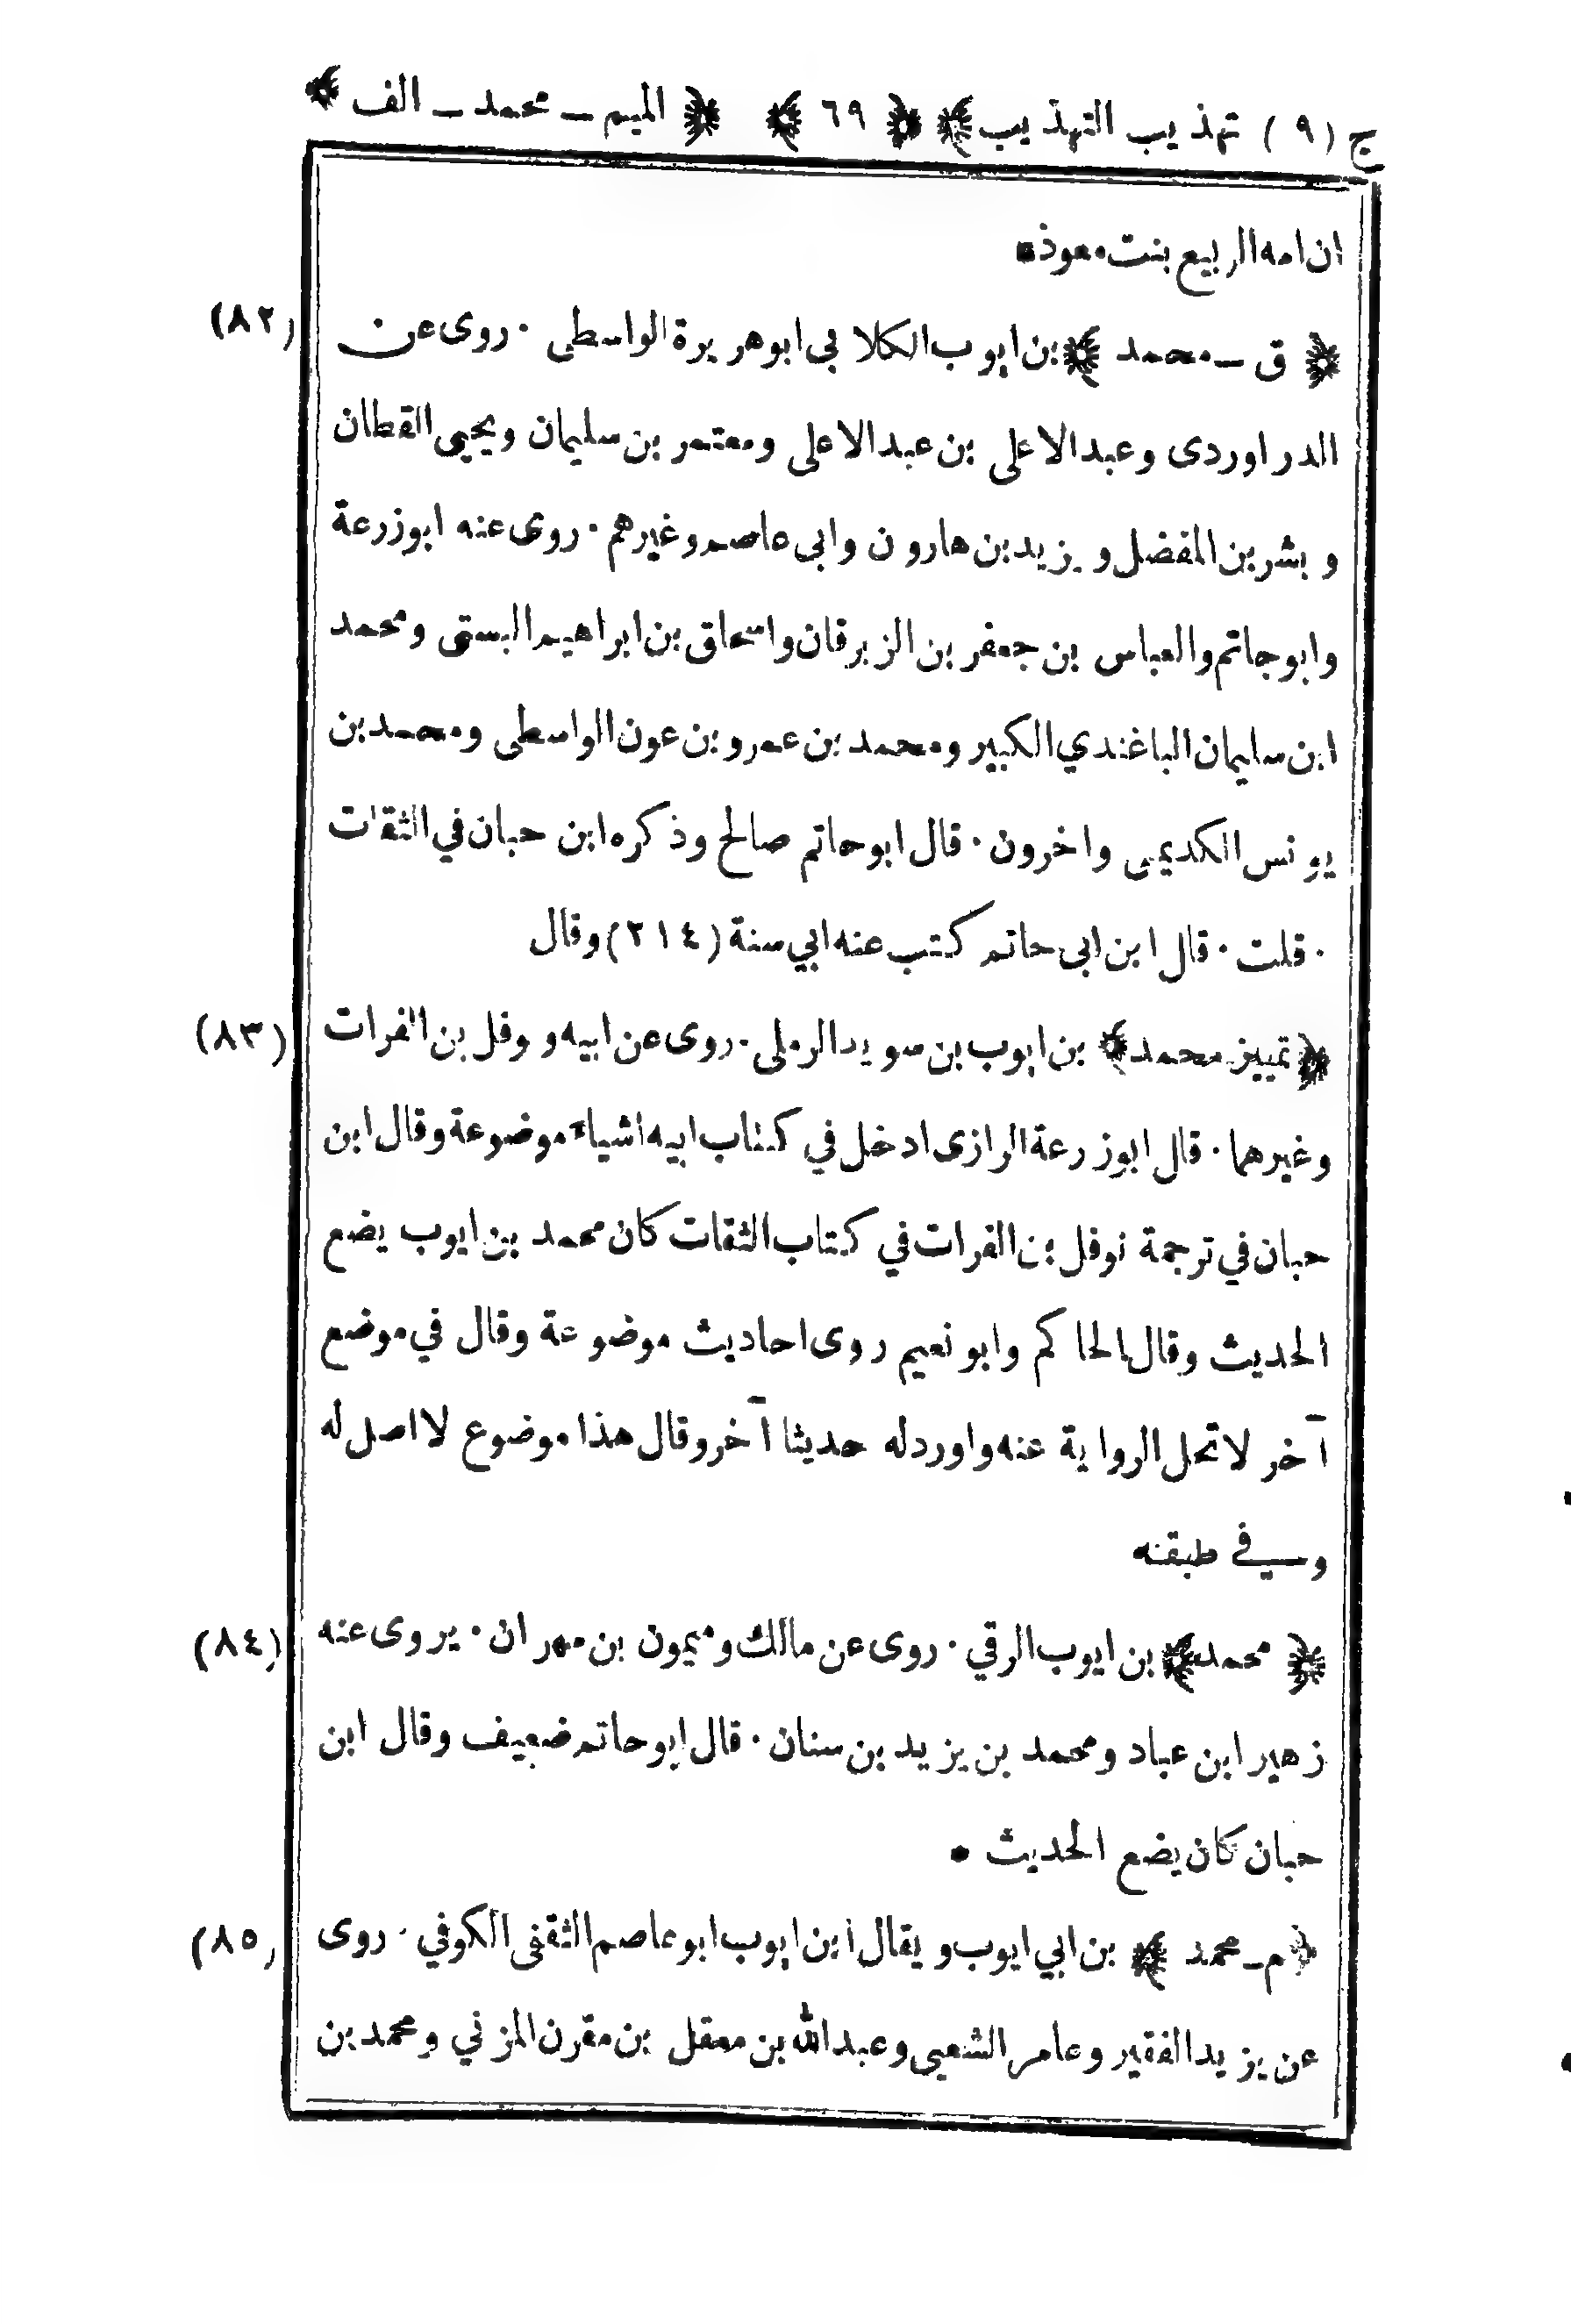 ج (٩) تهذيب التهذيب ﴾ ﴿ ٦٩ ﴾ ﴿ الميم ــ محمد ــ الف ﴾
ان امه الربيع بنت معوذ
﴿ ق ــ محمد ﴾ بن ايوب الكلابي ابوهريرة الواسطى ٠ روى عن (٨٢)
الدراوردى وعبدالاعلى بن عبدالاعلى ومعتمر بن سليمان ويحيى القطان
وبشر بن المفضل ويزيد بن هارون وابى عاصم وغيرهم ٠ روى عنه ابوزرعة
وابوجاتم والعباس بن جعفر بن الزبرقان واسحاق بن ابراهيم البستى ومحمد
ابن سليمان الباغندي الكبير ومحمد بن عمرو بن عون الواسطى ومحمد بن
يونس الكديمى واخرون ٠ قال ابوحاتم صالح وذكره ابن حبان في الثقات
٠ قلت ٠ قال ابن ابى حاتم كتب عنه ابي سنة (٢١٤) وقال
﴿ تمييز محمد ﴾ بن ايوب بن سويد الرملى ٠ روى عن ابيه و وفل بن الفرات (٨٣)
وغيرهما ٠ قال ابوزرعة الرازى ادخل في كتاب ابيه اشياء موضوعة وقال ابن
حبان في ترجمة نوفل بن الفرات في كتاب الثقات كان محمد بن ايوب يضع
الحديث وقال الحاكم وابو نعيم روى احاديث موضوعة وقال في موضع
آخر لاتحل الرواية عنه واوردله حديثا آخر وقال هذا موضوع لااصل له
وفي طبقته
﴿ محمد ﴾ بن ايوب الرقي ٠ روى عن مالك وميمون بن مهران ٠ يروى عنه (٨٤)
زهير ابن عباد ومحمد بن يزيد بن سنان ٠ قال ابوحاتم ضعيف وقال ابن
حبان كان يضع الحديث •
﴿ م ــ محمد ﴾ بن ابي ايوب ويقال ابن ايوب ابوعاصم الثقفى الكوفي ٠ روى (٨٥)
عن يزيد الفقير وعامر الشعبى وعبدالله بن معقل بن مقرن المزني ومحمد بن